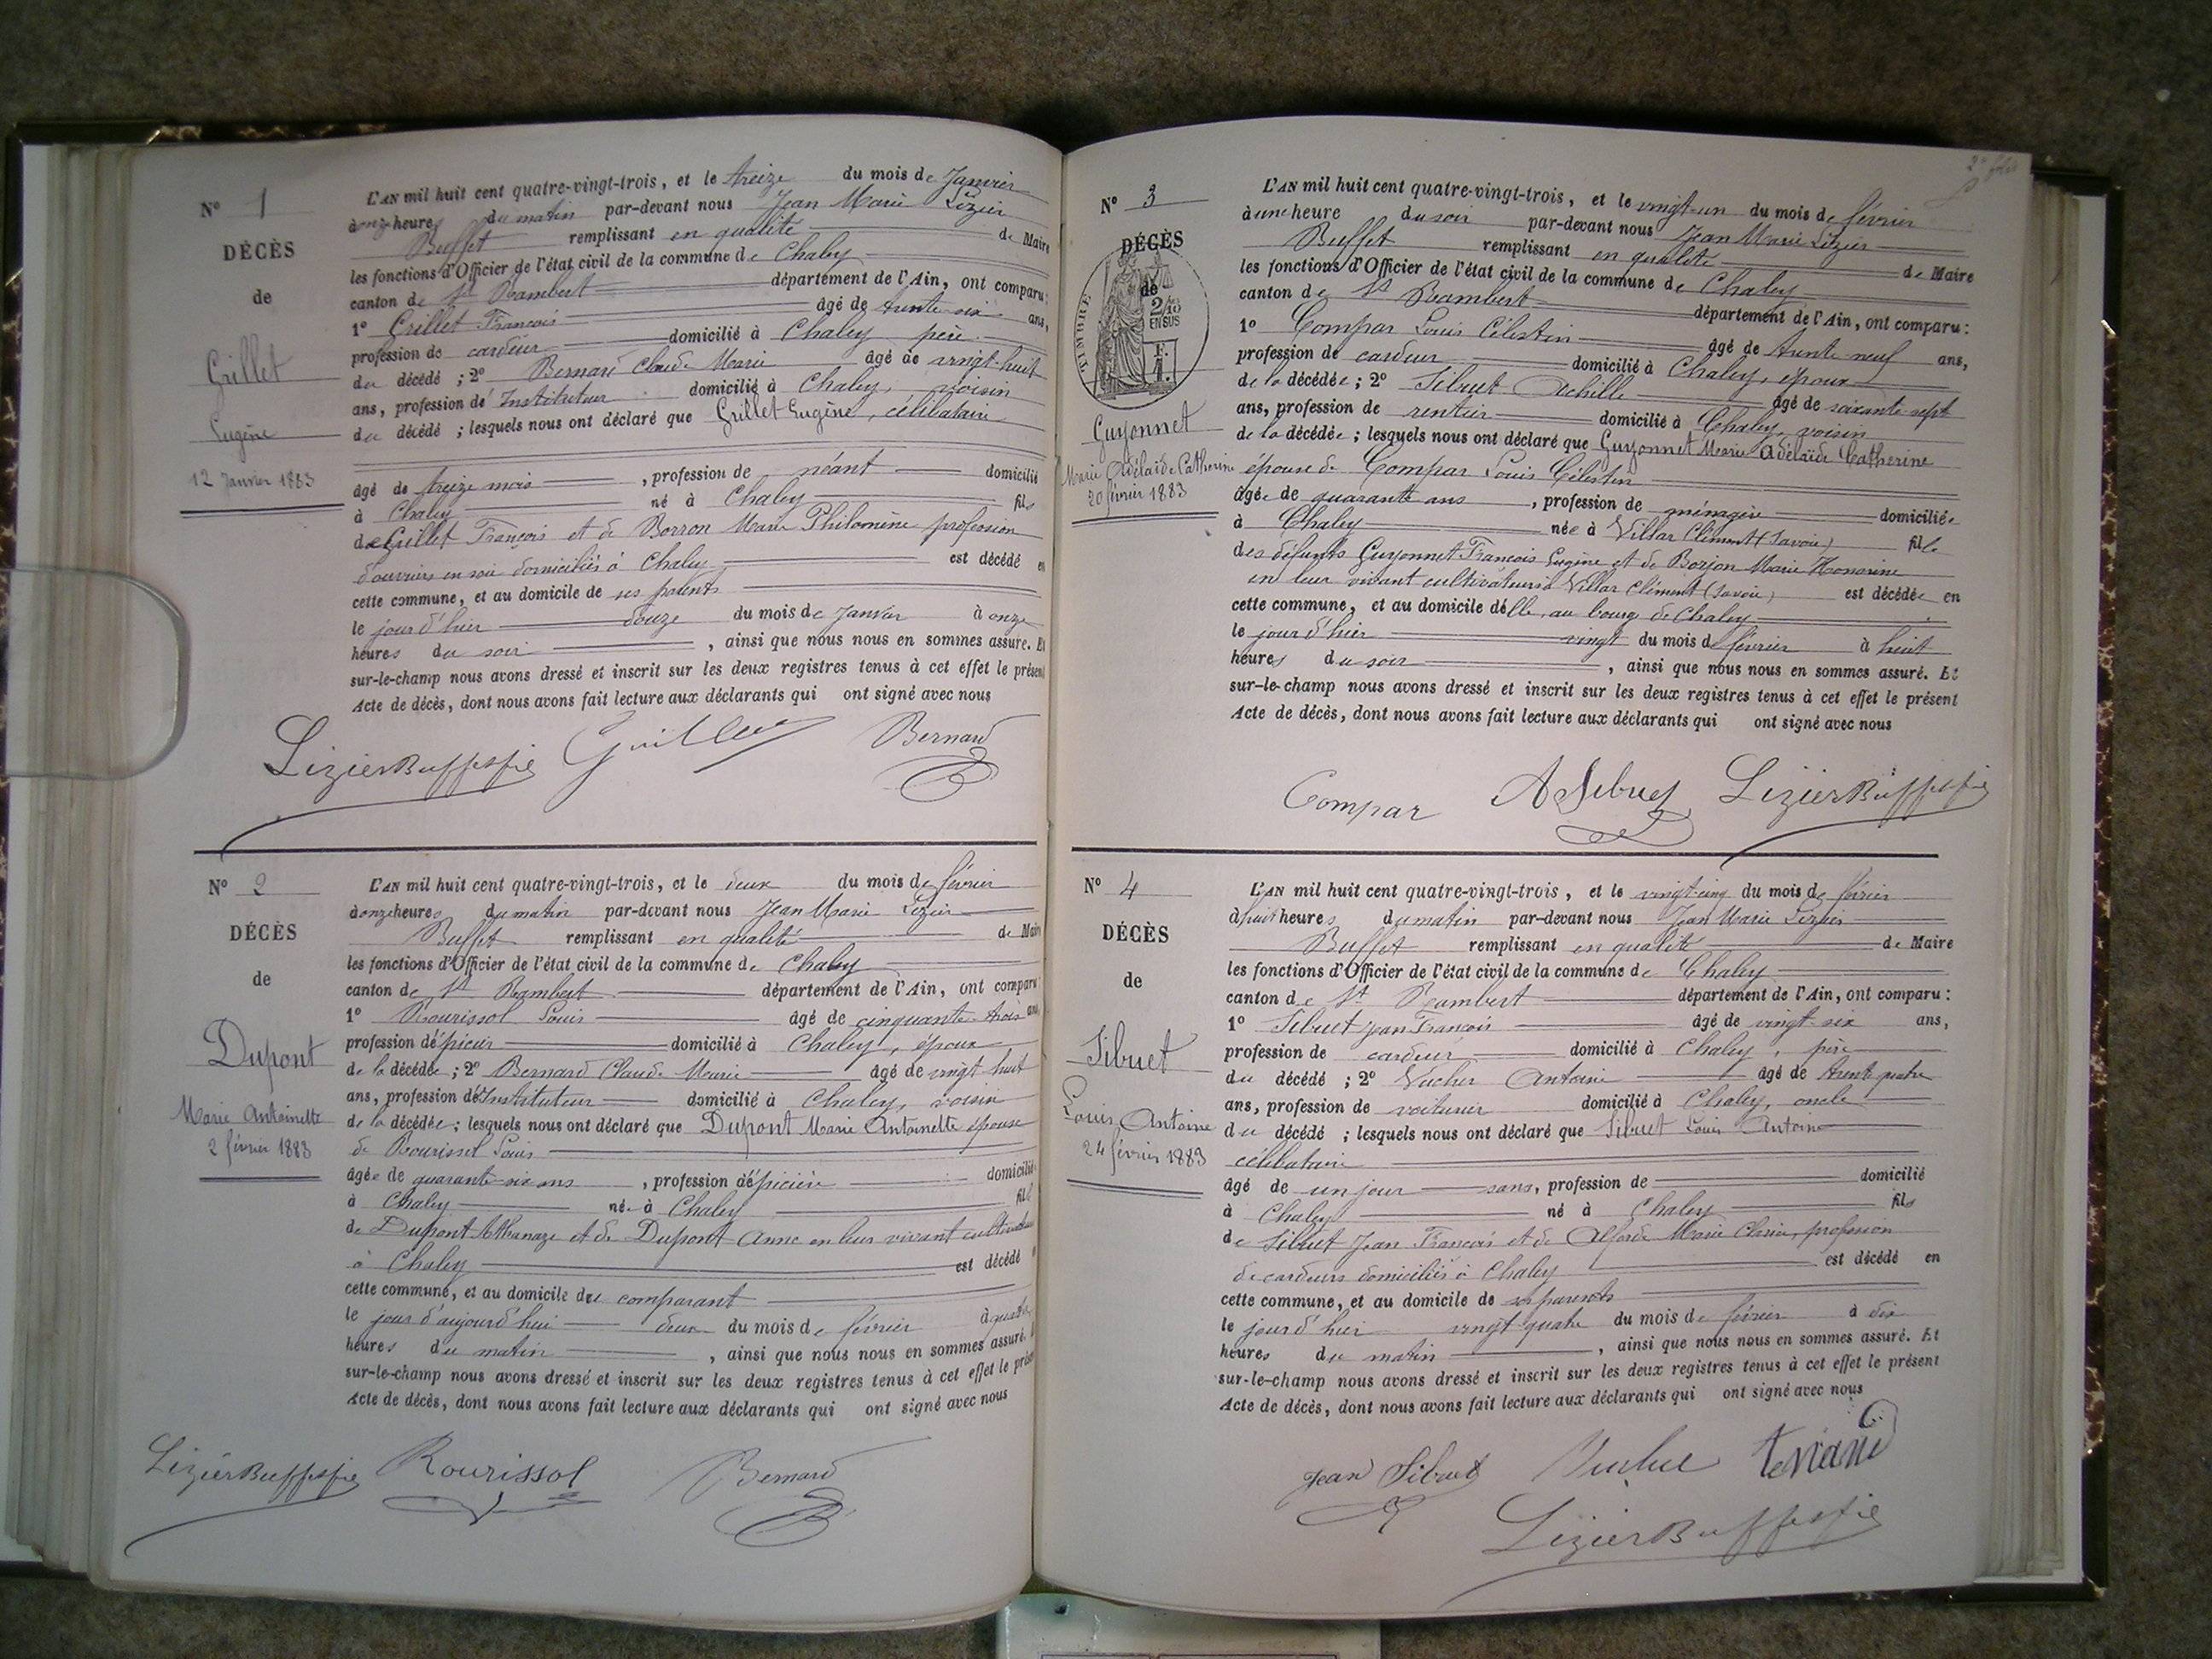 Nº 1
DÉCÈS
de
Grillet
Eugène
12 Janvier 1883
L'AN mil huit cent quatre-vingt-trois, et le treize du mois de Janvier
à onze heures du matin par-devant nous Jean Marie Lizier
Buffet remplissant en qualité de Maire
les fonctions d'Officier de l'état civil de la commune de Chaley
canton de St Rambert département de l'Ain, ont comparu:
1º Grillet François âgé de trente-six ans,
profession de cardeur domicilié à Chaley père
du décédé; 2º Bernard Claude Marie âgé de vingt-huit
ans, profession d'Instituteur domicilié à Chaley, voisin
du décédé; lesquels nous ont déclaré que Grillet Eugène, célibataire
âgé de treize mois, profession de néant domicilié
à Chaley né à Chaley fils
de Grillet François et de Borron Marie Philomène profession
d'ouvriers en soie domiciliés à Chaley est décédé en
cette commune, et au domicile de ses parents
le jour d'hier douze du mois de Janvier à onze
heures du soir, ainsi que nous nous en sommes assuré. Et
sur-le-champ nous avons dressé et inscrit sur les deux registres tenus à cet effet le présent
Acte de décès, dont nous avons fait lecture aux déclarants qui ont signé avec nous
LizierBuffet fils Grillet Bernard
Nº 2
DÉCÈS
de
Dupont
Marie Antoinette
2 février 1883
L'AN mil huit cent quatre-vingt-trois, et le deux du mois de février
à onze heures du matin par-devant nous Jean Marie Lizier
Buffet remplissant en qualité de Maire
les fonctions d'Officier de l'état civil de la commune de Chaley
canton de St Rambert département de l'Ain, ont comparu
1º Rourissol Louis âgé de cinquante-trois ans
profession d'épicier domicilié à Chaley, époux
de la décédée; 2º Bernard Claude Marie âgé de vingt huit
ans, profession d'Instituteur domicilié à Chaley, voisin
de la décédée; lesquels nous ont déclaré que Dupont Marie Antoinette épouse
de Rourissol Louis
âgée de quarante-six ans, profession d'épicière domicilié
à Chaley née à Chaley fille
de Dupont Athanaze et de Dupont Anne en leur vivant cultivateurs
à Chaley est décédé
cette commune, et au domicile du comparant
le jour d'aujourd'hui deux du mois de février à quatre
heures du matin, ainsi que nous nous en sommes assuré.
sur-le-champ nous avons dressé et inscrit sur les deux registres tenus à cet effet le présent
Acte de décès, dont nous avons fait lecture aux déclarants qui ont signé avec nous
LizierBuffet fils Rourissol Bernard
Nº 3
DÉCÈS
de
TIMBRE
2/10
EN SUS
Guyonnet
Marie Adélaïde Catherine
20 février 1883
L'AN mil huit cent quatre-vingt-trois, et le vingt-un du mois de février
à une heure du soir par-devant nous Jean Marie Lizier
Buffet remplissant en qualité de Maire
les fonctions d'Officier de l'état civil de la commune de Chaley
canton de St Rambert département de l'Ain, ont comparu:
1º Compar Louis Célestin âgé de trente-neuf ans,
profession de cardeur domicilié à Chaley, époux
de la décédée; 2º Sibuet Achille âgé de soixante-sept
ans, profession de rentier domicilié à Chaley, voisin
de la décédée; lesquels nous ont déclaré que Guyonnet Marie Adélaïde Catherine
épouse de Compar Louis Célestin
âgée de quarante ans, profession de ménagère domiciliée
à Chaley née à Villar Clément (Savoie) fille
des défunts Guyonnet François Eugène et de Borjon Marie Honorine
en leur vivant cultivateurs à Villar Clément (Savoie) est décédée en
cette commune, et au domicile d'elle, au bourg de Chaley
le jour d'hier vingt du mois de février à huit
heures du soir, ainsi que nous nous en sommes assuré. Et
sur-le-champ nous avons dressé et inscrit sur les deux registres tenus à cet effet le présent
Acte de décès, dont nous avons fait lecture aux déclarants qui ont signé avec nous
Compar A Sibuet LizierBuffet fils
Nº 4
DÉCÈS
de
Sibuet
Louis Antoine
24 février 1883
L'AN mil huit cent quatre-vingt-trois, et le vingt-cinq du mois de février
à huit heures du matin par-devant nous Jean Marie Lizier
Buffet remplissant en qualité de Maire
les fonctions d'Officier de l'état civil de la commune de Chaley
canton de St Rambert département de l'Ain, ont comparu:
1º Sibuet Jean François âgé de vingt-six ans,
profession de cardeur domicilié à Chaley, père
du décédé; 2º Vucher Antoine âgé de trente quatre
ans, profession de voiturier domicilié à Chaley, oncle
du décédé; lesquels nous ont déclaré que Sibuet Louis Antoine
célibataire
âgé de un jour sans, profession de domicilié
à Chaley né à Chaley fils
de Sibuet Jean François et de Marie profession
de cardeurs domiciliés à Chaley est décédé en
cette commune, et au domicile de ses parents
le jour d'hier vingt quatre du mois de février à dix
heures du matin, ainsi que nous nous en sommes assuré. Et
sur-le-champ nous avons dressé et inscrit sur les deux registres tenus à cet effet le présent
Acte de décès, dont nous avons fait lecture aux déclarants qui ont signé avec nous
Jean Sibuet Vucher
LizierBuffet fils